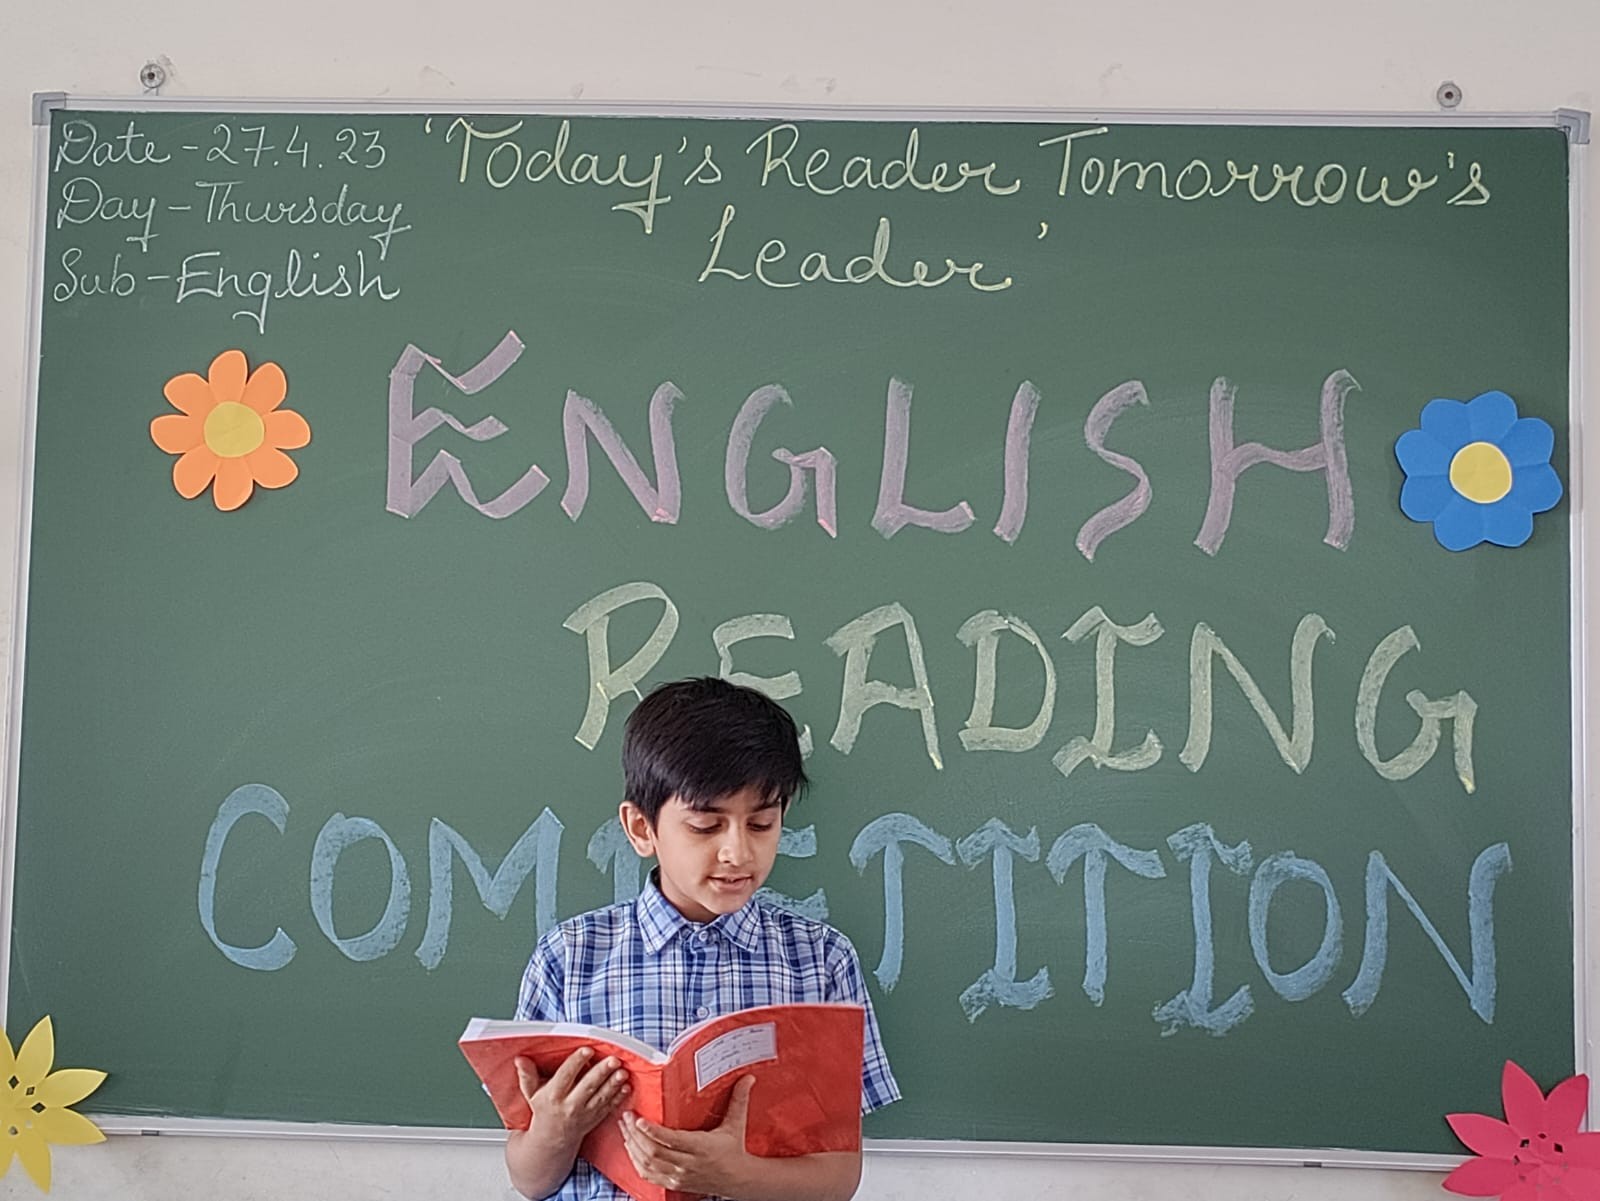 Date - 27.4.23
Day - Thursday
Sub - English
'Today's Reader Tomorrow's
Leader'
ENGLISH
READING
COMPETITION